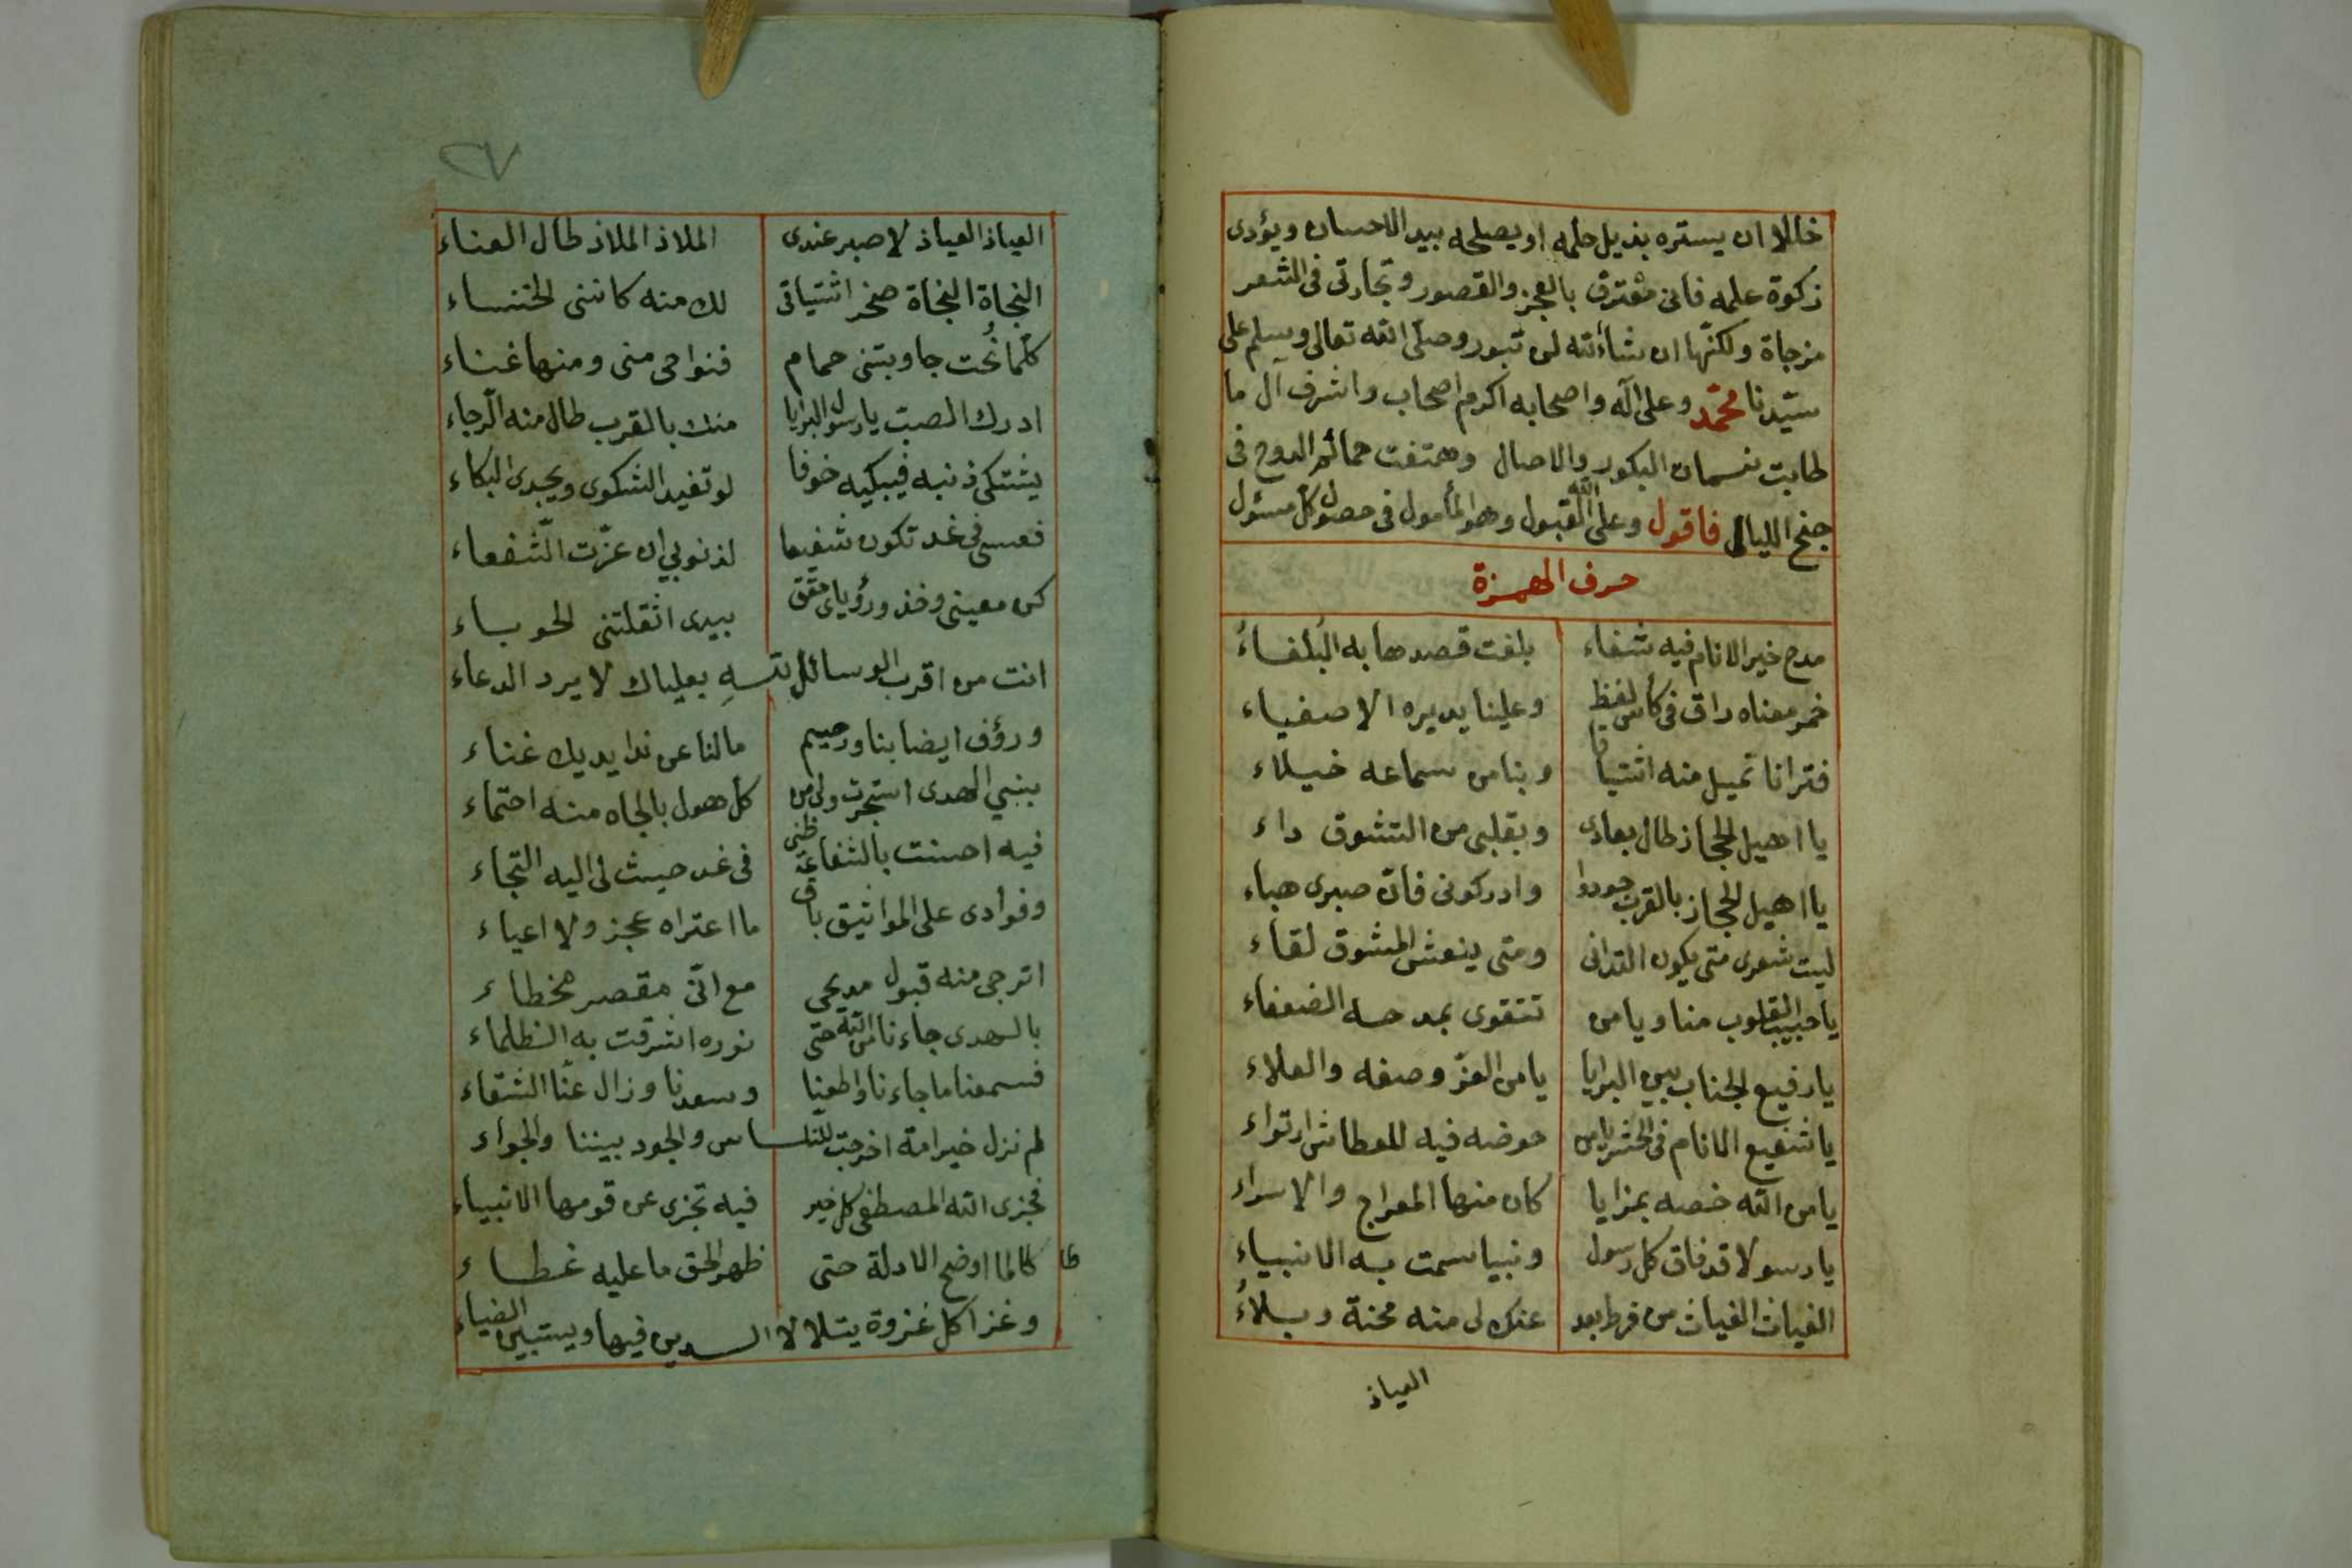 خاللا ان يستره بذيل حلمه او يصلحه بيد الاحسان ويؤدى
زكوة علمه فانى معترف بالعجز والقصور وتجارتى فى الشعر
مزجاة ولكنها ان شاء الله لن تبور وصلى الله تعالى وسلم على
سيّدنا محمّد وعلى آله واصحابه اكرم اصحاب واشرف آل ما
طابت نسمات البكور والاصال وهتفت حمائم الدوح فى
جنح الليال فاقول وعلى الله القبول وهو المأمول فى حصول كل مسئول
حرف الهمزة
مدح خير الانام فيه شفاء بلغت قصدها به البُلغاءُ
خمر معناه راق فى كاس لفظ وعلينا يديره الاصفياء
فترانا نميل منه اشتياقا وبنا من سماعه خيلاء
يا اهيل الحجاز طال بعادى وبقلبى من التشوق داء
يا اهيل الحجاز بالقرب جودوا وادركونى فانّ صبرى هباء
ليت شعرى متى يكون التدانى ومتى ينعش المشوق لقاء
يا حبيب القلوب منا ويا من تتقوى بمدحه الضعفاء
يا رفيع الجناب بين البرايا يا من العزّ وصفه والعلاء
يا شفيع الانام فى الحشر يا من حوضه فيه للعطاش ارتواء
يا من الله خصه بمزايا كان منها المعراج والاسراء
يا رسولا قد فاق كل رسول ونبيا سمت به الانبياء
الغياث الغياث من فرط بعد عنك لى منه محنة وبلاءُ
العياذ
٢٧
العياذ العياذ لا صبر عندى الملاذ الملاذ طال العناء
النجاة النجاة صخر اشتياقى لك منه كاننى الخنساء
كلّما نُحت جاوبتنى حمام فنواحى منى ومنها غناء
ادرك الصب يا رسول البرايا منك بالقرب طال منه الرجاء
يشتكى ذنبه فيبكيه خوفا لو تفيد الشكوى ويجدى البكاء
فعسى فى غد تكون شفيعا لذنوبى ان عزّت الشّفعاء
كن معينى وخذ ورؤياى حقق بيدى اثقلتنى الحوباء
انت من اقرب الوسائل لله بعلياك لا يرد الدعاء
ورؤف ايضا بنا ورحيم ما لنا عن ندا يديك غناء
بنبي الهدى استجرت ولى من كل هول بالجاه منه احتماء
فيه احسنت بالشفاعة ظنى فى غد حيث لى اليه التجاء
وفوادى على المواثيق باق ما اعتراه عجز ولا اعياء
اترجى منه قبول مديحى مع انّى مقصر مخطاء
بالهدى جاءنا من الله حتى نوره اشرقت به الظلماء
فسمعنا ما جاءنا واطعنا وسعدنا وزال عنّا الشقاء
لم نزل خير امة اخرجت للناس والجود بيننا والجواء
فجزى الله المصطفى كل خير فيه تجزى عن قومها الانبياء
طالما اوضح الادلة حتى ظهر الحق ما عليه غطاء
وغزا كل غزوة يتلالا الدين فيها ويستبين الضياء